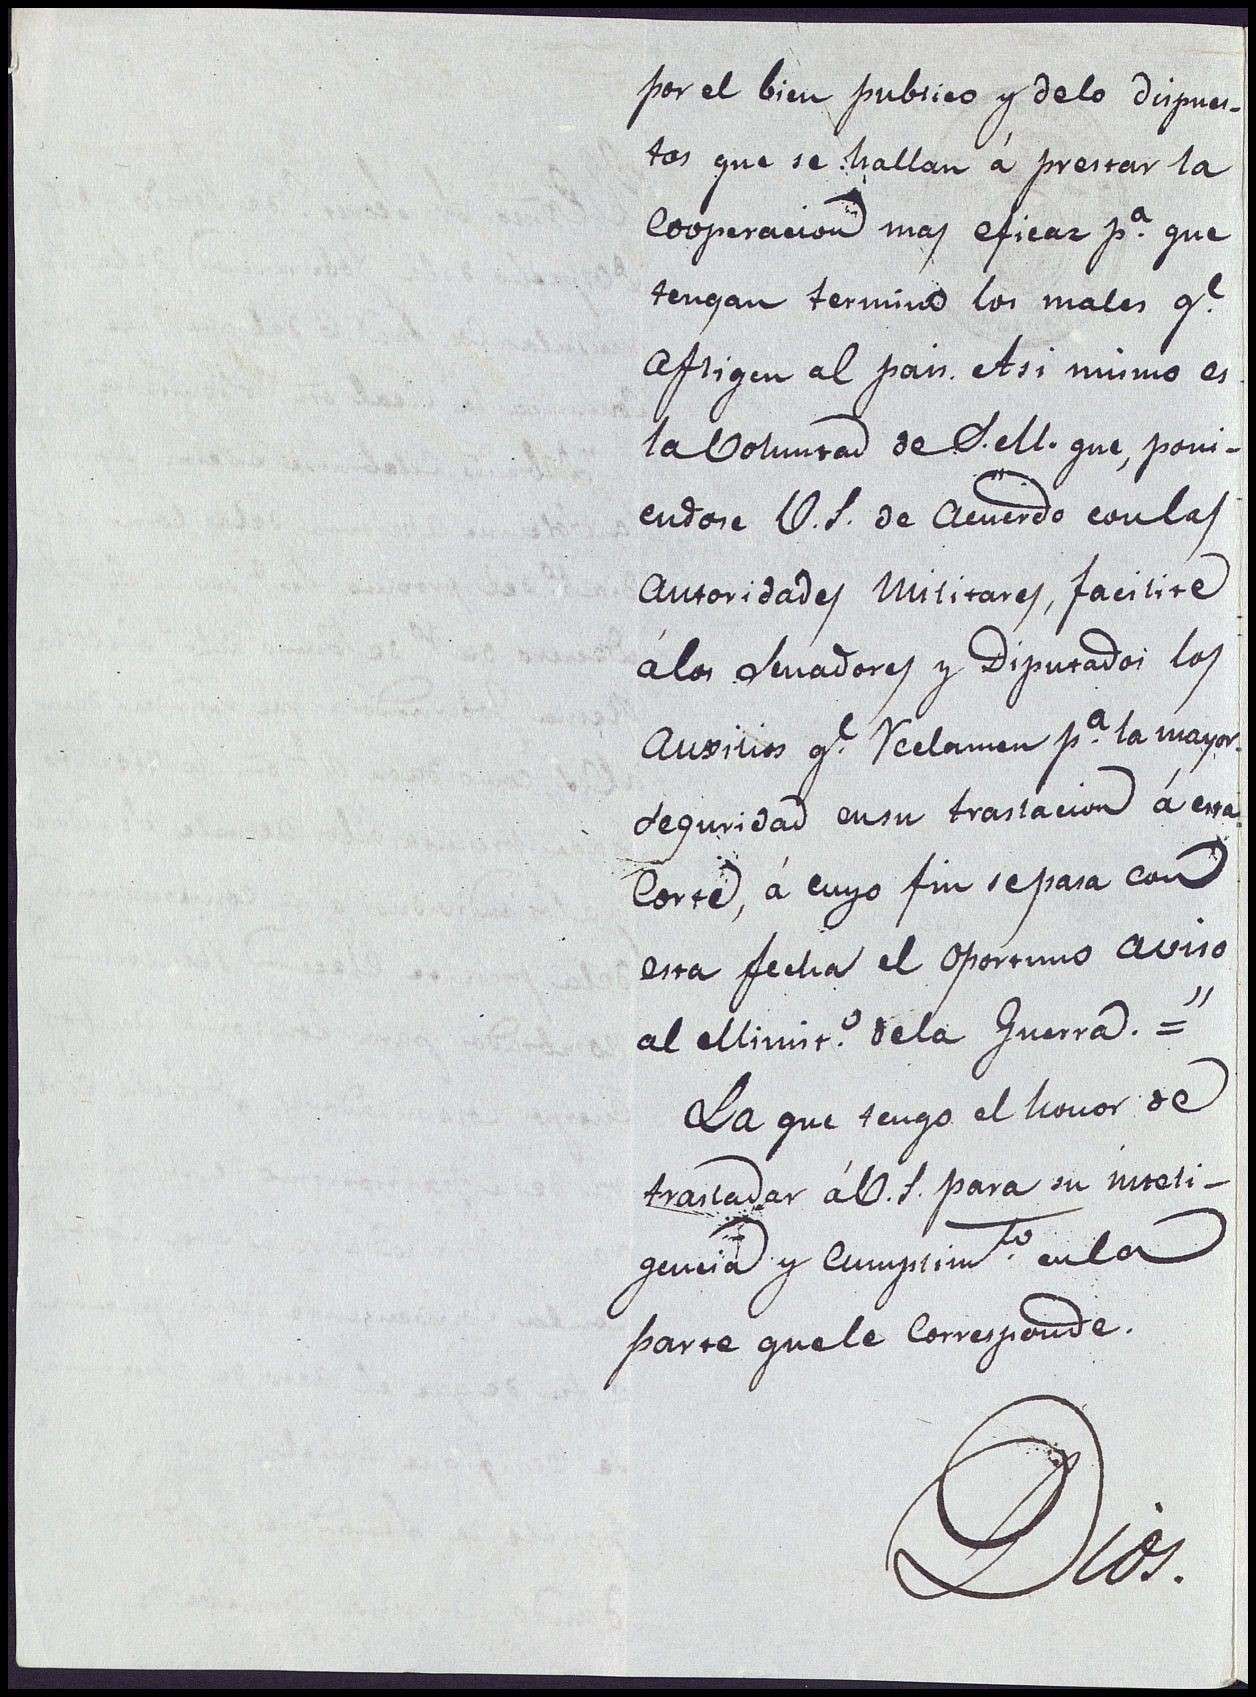 por el bien publico y delo dispues-
tos que se hallan á prestar la
Cooperacion mas eficaz p.ª que
tengan termino los males q.e
afligen al pais. Asi mismo es
la Voluntad de S. M. que, poni-
endose V. S. de acuerdo con las
autoridades Militares, facilite
álos Senadores y Diputados los
auxilios q.e Reclamen p.ª la mayor
Seguridad ensu traslacion á esta
Corte, á cuyo fin se pasa con
esta fecha el oportuno aviso
al Minist.o dela Guerra. ="
La que tengo el honor de
trasladar áV. S. para su inteli-
gencia y Cumplim.to enla
parte quele Corresponde.
Dios.